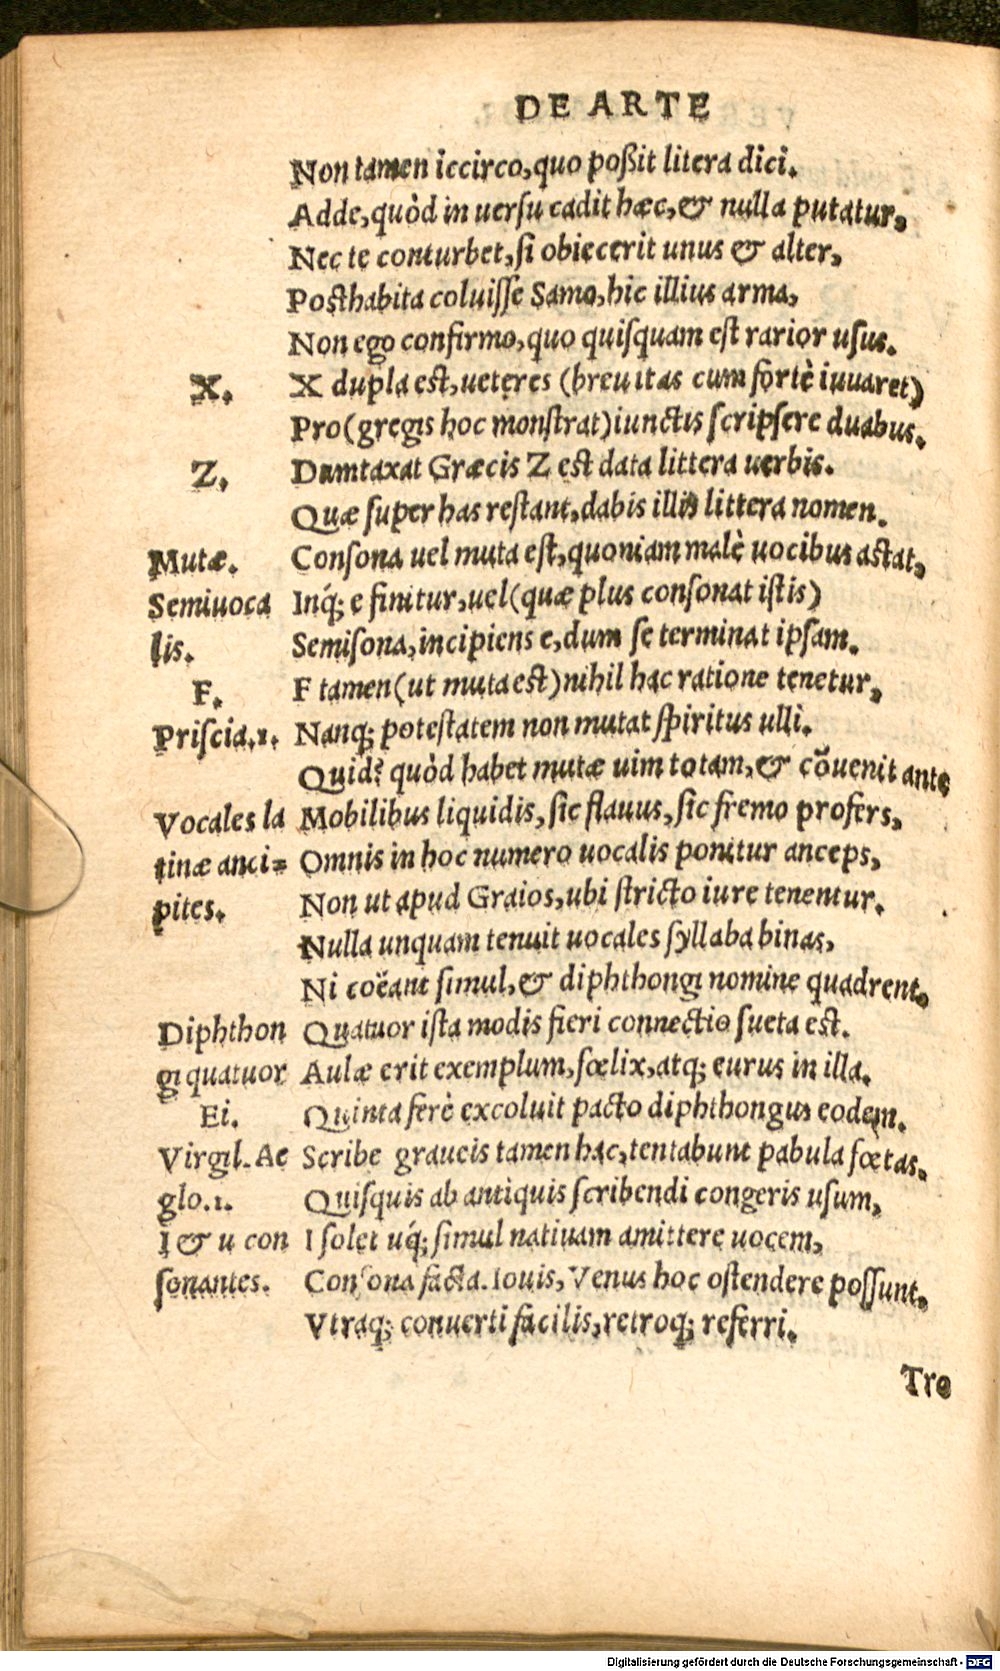 DE ARTE
Non tamen iccirco, quo poßit litera dici.
Adde, quòd in uersu cadit hæc, & nulla putatur,
Nec te conturbet, si obiecerit unus & alter,
Posthabita coluisse Samo, hic illius arma,
Non ego confirmo, quo quisquam est rarior usus.
X. X dupla est, ueteres (breuitas cum fortè iuuaret)
Pro (gregis hoc monstrat) iunctis scripsere duabus.
Z. Duntaxat Græcis Z est data littera uerbis.
Quæ super has restant, dabis illis littera nomen.
Mutæ. Consona uel muta est, quoniam malè uocibus astat,
Semiuoca Inq́; e finitur, uel (quæ plus consonat istis)
lis. Semisona, incipiens e, dum se terminat ipsam.
F. F tamen (ut muta est) nihil hac ratione tenetur,
Priscia.1. Nanq; potestatem non mutat spiritus ulli.
Quid? quòd habet mutæ uim totam, & cõuenit ante
Vocales la Mobilibus liquidis, sic flauus, sic fremo profers,
tinæ anci= Omnis in hoc numero uocalis ponitur anceps,
pites. Non ut apud Graios, ubi stricto iure tenentur.
Nulla unquam tenuit uocales syllaba binas,
Ni coëant simul, & diphthongi nomine quadrent.
Diphthon Quatuor ista modis fieri connectio sueta est.
gi quatuor Aulæ erit exemplum, fœlix, atq; eurus in illa.
Ei. Quinta ferè excoluit pacto diphthongus eodem.
Virgil. Ae Scribe graueis tamen hac, tentabunt pabula fœtas.
glo.1. Quisquis ab antiquis scribendi congeris usum,
I & u con I solet uq́; simul natiuam amittere uocem,
sonantes. Consona facta. Iouis, Venus hoc ostendere possunt.
Vtraq; conuerti facilis, retroq; referri.
Tro
Digitalisierung gefördert durch die Deutsche Forschungsgemeinschaft - DFG